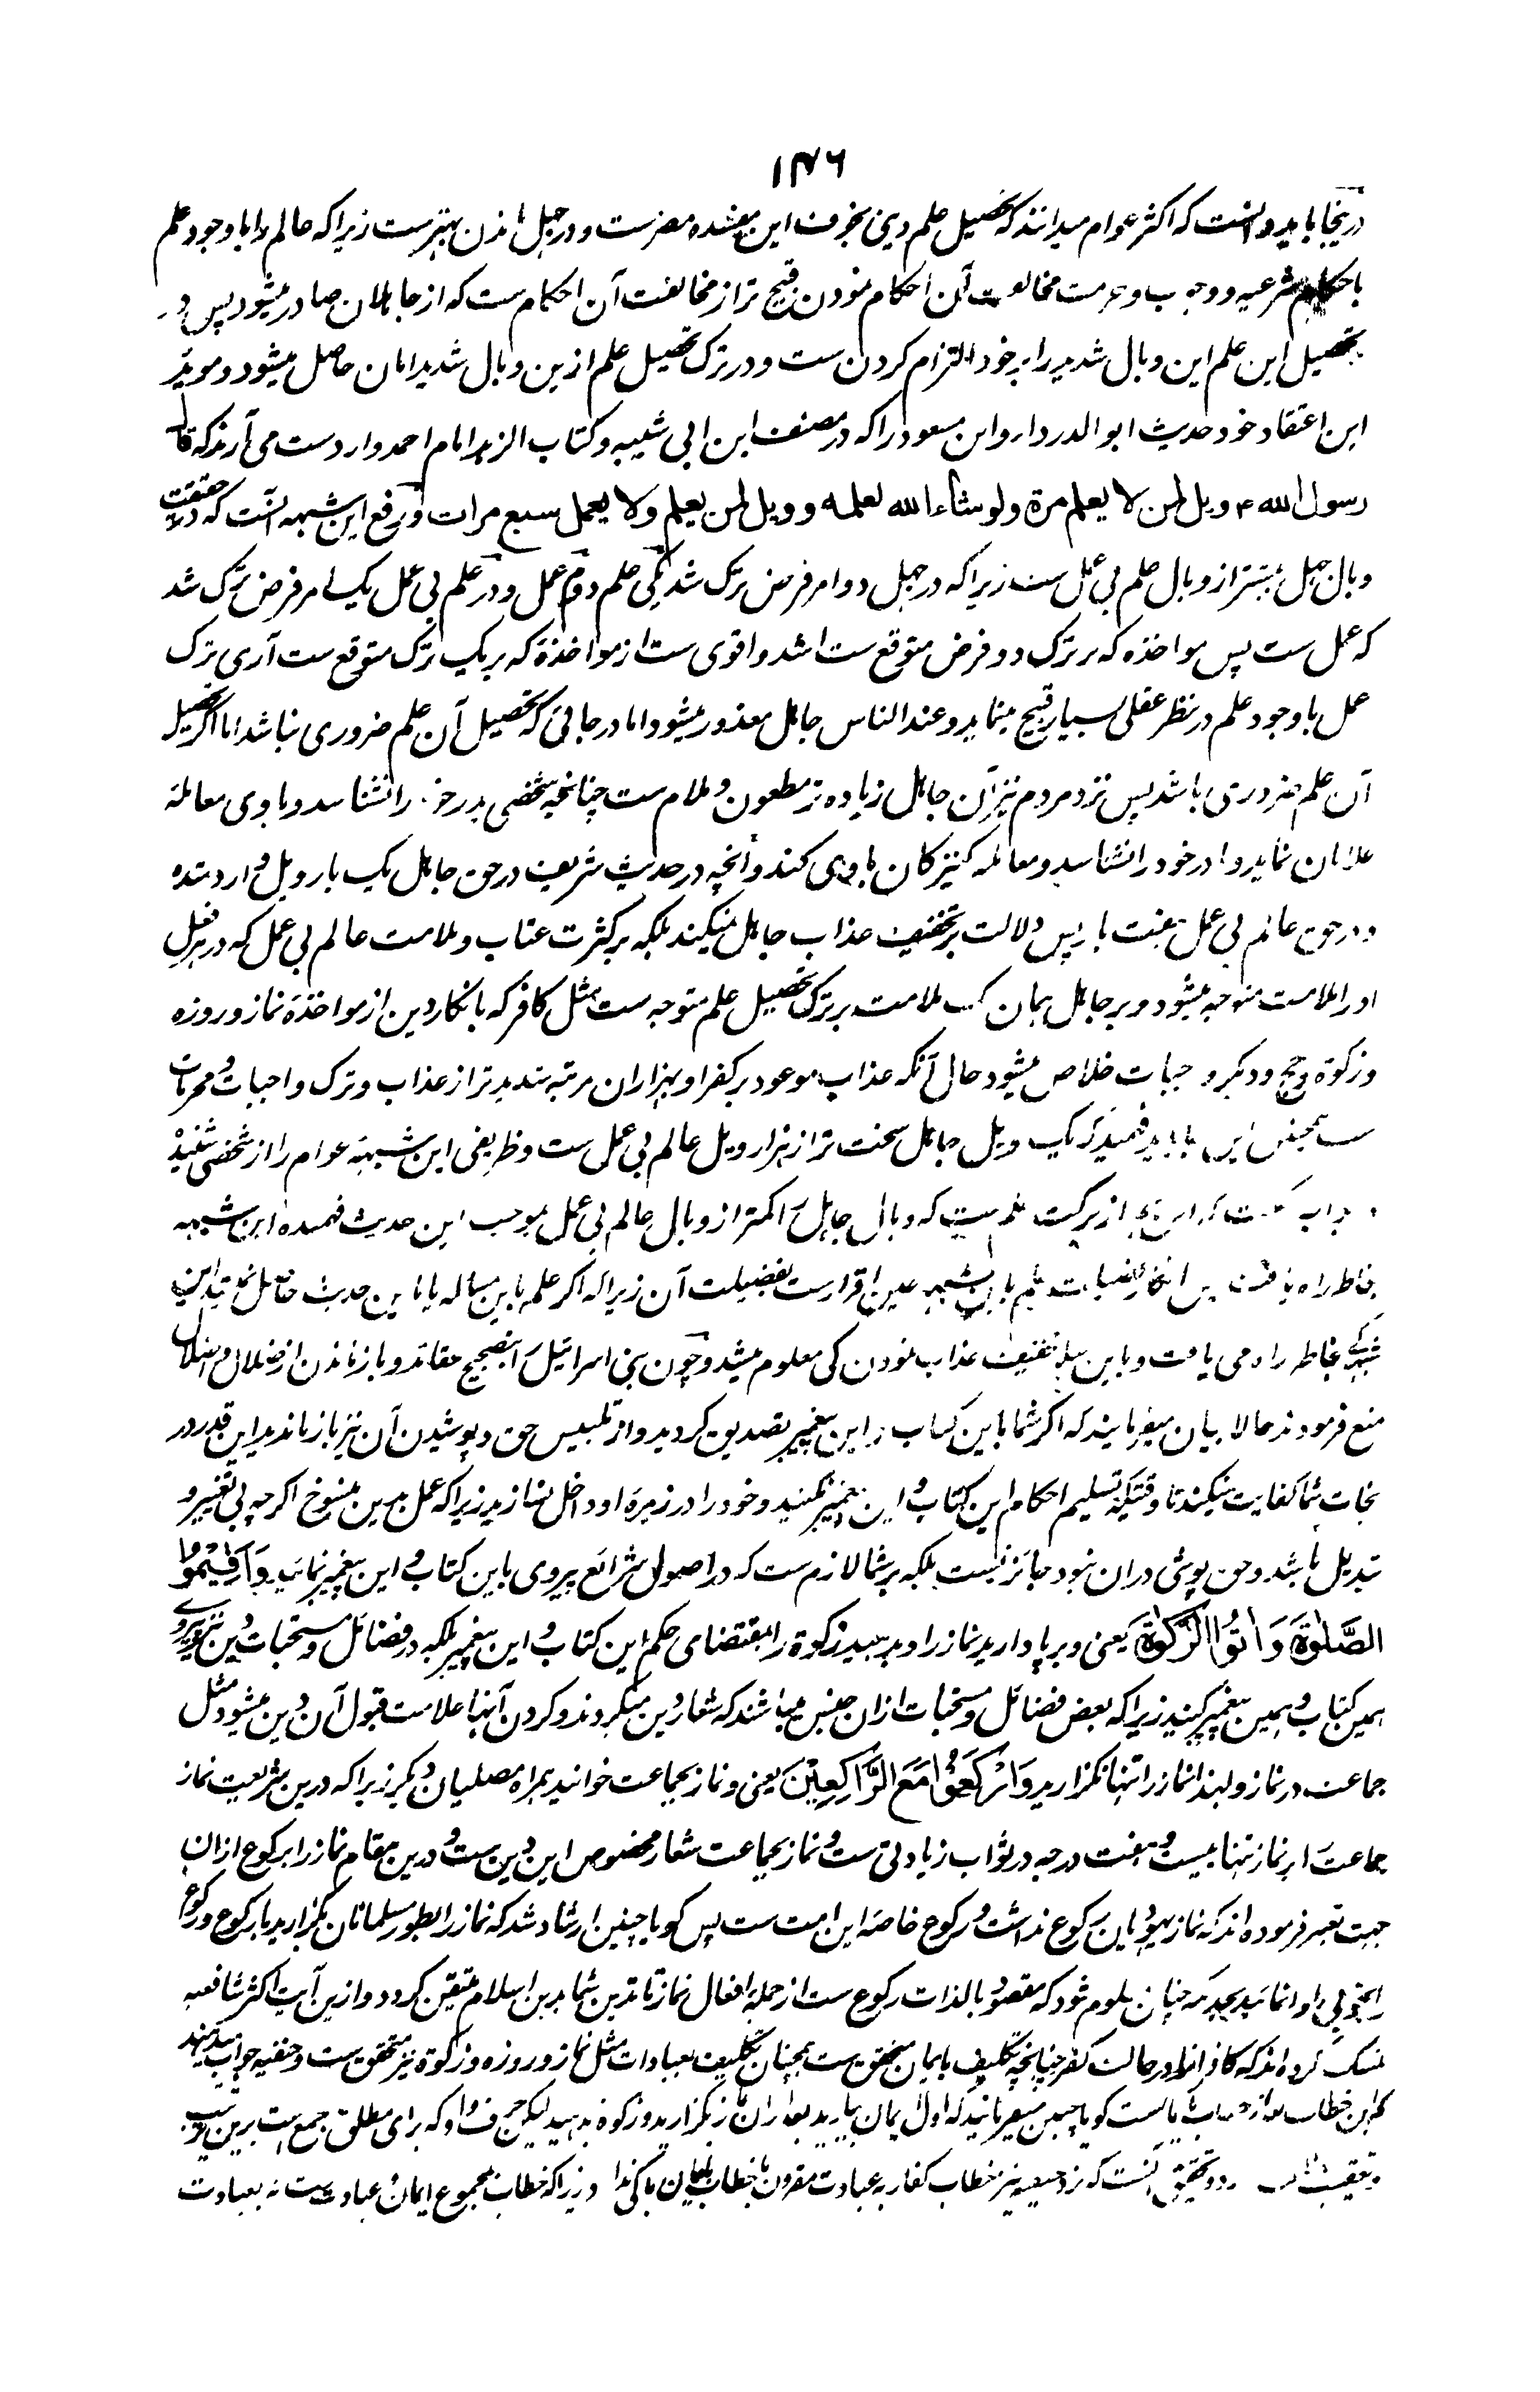 ۱۴۶
درینجا باید دانست که اکثر عوام میدانند که تحصیل علم دین بخوف این مفسده مضرست و در جهل ماندن بهترست زیرا که عالم را با وجود علم
باحکام شرعیه و وجوب و حرمت مخالفت آن احکام نمودن قبیح تر از مخالفت آن احکام ست که از جاهلان صادر میشود پس در
تحصیل این علم این وبال شدید را بر خود التزام کردن ست و در ترک تحصیل علم ازین وبال شدید امان حاصل میشود و موید
این اعتقاد خود حدیث ابو الدرداء و ابن مسعود را که در مصنف ابن ابی شیبه و کتاب الزهد امام احمد وارد ست می آرند که قال
رسول الله ویل لمن لا یعلم مرة ولو شاء الله لعلمه وویل لمن یعلم ولا یعمل سبع مرات و رفع این شبهه آنست که در حقیقت
وبال جهل بیشتر از وبال علم بی عمل ست زیرا که در جهل دو امر فرض ترک شد یکی علم دوم عمل و در علم بی عمل یک امر فرض ترک شد
که عمل ست پس مواخذه که بر ترک دو فرض متوقع ست اشد و اقوی ست از مواخذهٔ که بر یک ترک متوقع ست آری ترک
عمل با وجود علم در نظر عقلی بسیار قبیح مینماید و عند الناس جاهل معذور میشود اما در جائی که تحصیل آن علم ضروری نباشد اما اگر تحصیل
آن علم ضروری باشد پس نزد مردم نیز آن جاهل زیاده تر مطعون و ملام ست چنانچه شخصی پدر خود را نشناسد و با وی معاملهٔ
غلامان نماید و مادر خود را نشناسد و معامله کنیزکان با وی کند و آنچه در حدیث شریف در حق جاهل یک بار ویل وارد شده
و در حق عالم بی عمل هفت بار پس دلالت بر تخفیف عذاب جاهل نمیکند بلکه بر کثرت عتاب و ملامت عالم بی عمل که در هر فعل
او را ملامت متوجه میشود و بر جاهل همان یک ملامت بر ترک تحصیل علم متوجه ست مثل کافر که بانکار دین از مواخذهٔ نماز و روزه
و زکوة و حج و دیگر واجبات خلاص میشود حال آنکه عذاب موعود بر کفر او بهزاران مرتبه شدیدتر از عذاب و ترک واجبات و محرمات
ست همچنین این جا باید فهمید که یک ویل جاهل سخت تر از هزار ویل عالم بی عمل ست و ظریفی این شبههٔ عوام را از شخصی شنید
که وبال جاهل را کمتر از وبال عالم بی عمل بموجب این حدیث فهمیده این شبهه
بخاطر راه یافت پس انکار فضیلت علم باین شبهه عین اقرار ست بفضیلت آن زیرا که اگر علم باین مساله یا باین حدیث حاصل نمیشد این
شبهه کی بخاطر راه می یافت و باین حیله تخفیف عذاب نمودن کی معلوم میشد و چون بنی اسرائیل را بتصحیح عقائد و باز ماندن از ضلال و اضلال
منع فرمودند حالا بیان میفرمایند که اگر شما باین کتاب و این پیغمبر تصدیق کردید و از تلبیس حق و پوشیدن آن نیز باز ماندید این قدر در
نجات شما کفایت نمیکند تا وقتیکه تسلیم احکام این کتاب و این پیغمبر نکنید و خود را در زمرهٔ او داخل نسازید زیرا که عمل بدین منسوخ اگرچه بی تغییر و
تبدیل باشد و حق پوشی دران نبود جائز نیست بلکه بر شما لازم ست که در اصول شرائع پیروی باین کتاب و این پیغمبر نمائید وَاَقِیْمُوا
الصَّلٰوةَ وَاٰتُوا الزَّکٰوةَ یعنی و برپا دارید نماز را و بدهید زکوة را بمقتضای حکم این کتاب و این پیغمبر بلکه در فضائل و مستحبات دین نیز پیروی
همین کتاب و همین پیغمبر کنید زیرا که بعض فضائل و مستحبات ازان جنس میباشند که شعار دین میگردند و کردن آنها علامت قبول آن دین میشود مثل
جماعت در نماز و لهذا نماز را تنها نگزارید وَارْکَعُوْا مَعَ الرَّاکِعِیْنَ یعنی و نماز بجماعت خوانید همراه مصلیان دیگر زیرا که درین شریعت نماز
جماعت را بر نماز تنها بیست و هفت درجه در ثواب زیادتی ست و نماز بجماعت شعار مخصوص این دین ست و درین مقام نماز را برکوع ازان
جهت تعبیر فرموده اند که نماز یهودیان رکوع نداشت و رکوع خاصهٔ این امت ست پس گویا چنین ارشاد شد که نماز را بطور مسلمانان بگزارید با رکوع و رکوع
را بخوبی ادا نمائید بحدیکه چنان معلوم شود که مقصود بالذات رکوع ست از جمله افعال نماز تا تدین شما بدین اسلام متیقن گردد و ازین آیت اکثر شافعیه
تمسک کرده اند که کافر را در حالت کفر چنانچه تکلیف بایمان متحقق ست همچنان تکلیف بعبادات مثل نماز و روزه و زکوة نیز متحقق ست و حنفیه جواب میدهند
که این خطاب بعد از خطاب بایمان ست گویا چنین میفرمایند که اول ایمان بیارید بعد ازان نماز بگزارید و زکوة بدهید لیکن حرف واو که برای مطلق جمع ست برین ترتیب
و تعقیب و تحقیق آنست که نزد حنفیه نیز خطاب کفار به عبادت مقرون با خطاب بایمان باکی ندارد زیرا که خطاب بمجموع ایمان و عبادت ست نه بعبادت